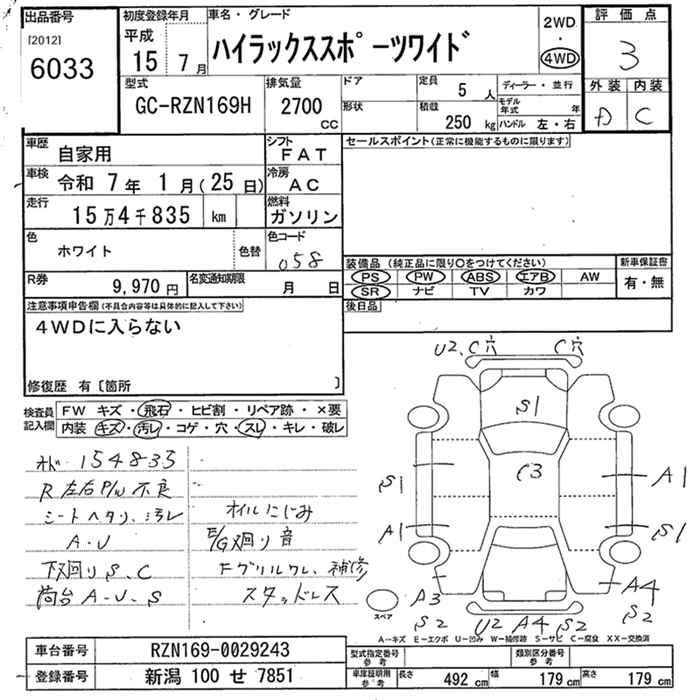 出品番号 [2012] 6033
初度登録年月 平成 15年 7月
車名・グレード ハイラックススポーツワイド
2WD ・ 4WD
評価点 3
外装 D 内装 C
型式 GC-RZN169H
排気量 2700 CC
ドア 形状
定員 5人
積載 250 kg
ディーラー・並行
モデル年式 年
ハンドル 左・右
車歴 自家用
シフト FAT
セールスポイント(正常に機能するものに限ります)
車検 令和 7年 1月(25日)
冷房 AC
走行 15万4千835 km
燃料 ガソリン
色 ホワイト 色替
色コード 058
装備品(純正品に限り○をつけてください)
新車保証書 有・無
PS PW ABS エアB AW
SR ナビ TV カワ
R券 9,970円
名変通知期限 月 日
後日品
注意事項申告欄(不具合内容等は具体的に記入して下さい)
4WDに入らない
修復歴 有〔箇所 〕
検査員記入欄
FW キズ・飛石・ヒビ割・リペア跡・×要
内装 キズ・汚レ・コゲ・穴・スレ・キレ・破レ
オド 154835
R左右P/W不良
シートヘタリ、汚レ
A・U
下廻りS、C
荷台A・U・S
オイルにじみ
E/G廻り音
Fグリルワレ、補修
スタッドレス
U2、C穴 C穴
S1
C3
S1 A1
A1 S1
A3 S2
A4 S2
U2 A4 S2
スペア
A─キズ E─エクボ U─凹み W─補修跡 S─サビ C─腐食 XX─交換済
車台番号 RZN169-0029243
登録番号 新潟 100 せ 7851
型式指定番号 参考
類別区分番号 参考
車庫証明用 参考 長さ 492 cm 幅 179 cm 高さ 179 cm